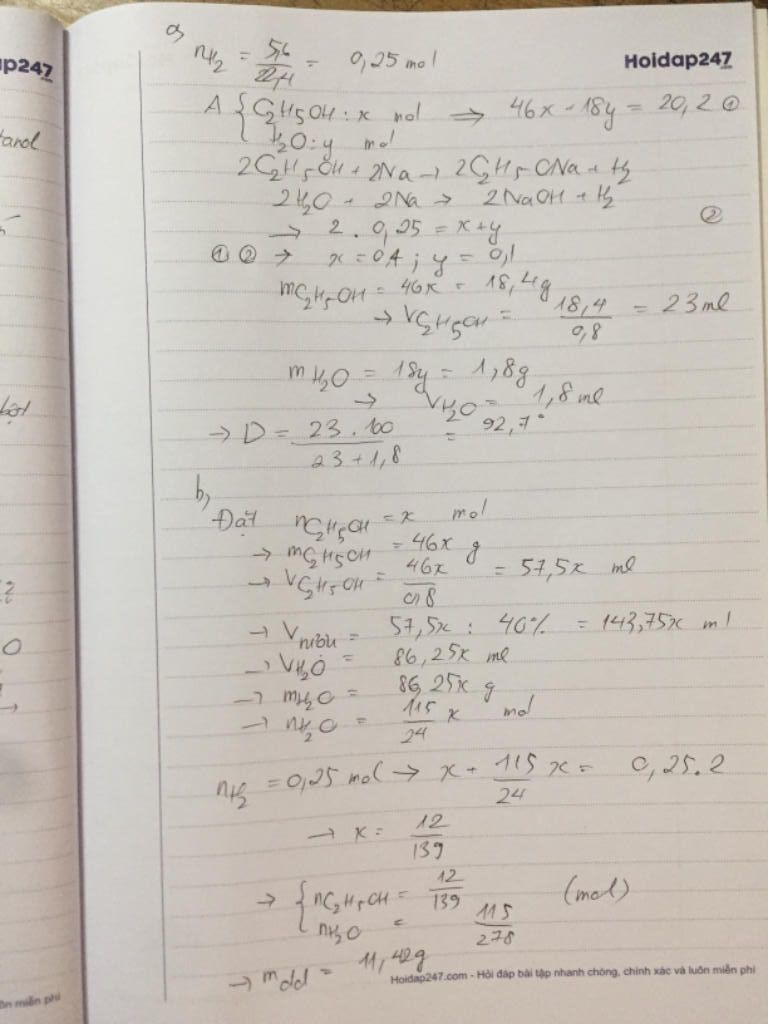 a,
nH2 = 5,6/22,4 = 0,25 mol
Hoidap247
A { C2H5OH : x mol => 46x + 18y = 20,2 ①
H2O : y mol
2C2H5OH + 2Na → 2C2H5ONa + H2
2H2O + 2Na → 2NaOH + H2
→ 2 . 0,25 = x + y ②
① ② → x = 0,4 ; y = 0,1
mC2H5OH = 46x = 18,4g
→ VC2H5OH = 18,4/0,8 = 23 ml
mH2O = 18y = 1,8g
→ VH2O = 1,8 ml
→ D = 23 . 100/23 + 1,8 = 92,7°
b,
Đặt nC2H5OH = x mol
→ mC2H5OH = 46x g
→ VC2H5OH = 46x/0,8 = 57,5x ml
→ Vrượu = 57,5x : 40% = 143,75x ml
→ VH2O = 86,25x ml
→ mH2O = 86,25x g
→ nH2O = 115/24 x mol
nH2 = 0,25 mol → x + 115/24 x = 0,25.2
→ x = 12/139
→ { nC2H5OH = 12/139 (mol)
nH2O = 115/278
→ mdd = 11,42g
Hoidap247.com - Hỏi đáp bài tập nhanh chóng, chính xác và luôn miễn phí
ap247
tanol
bột
2
O
ôn miễn phí